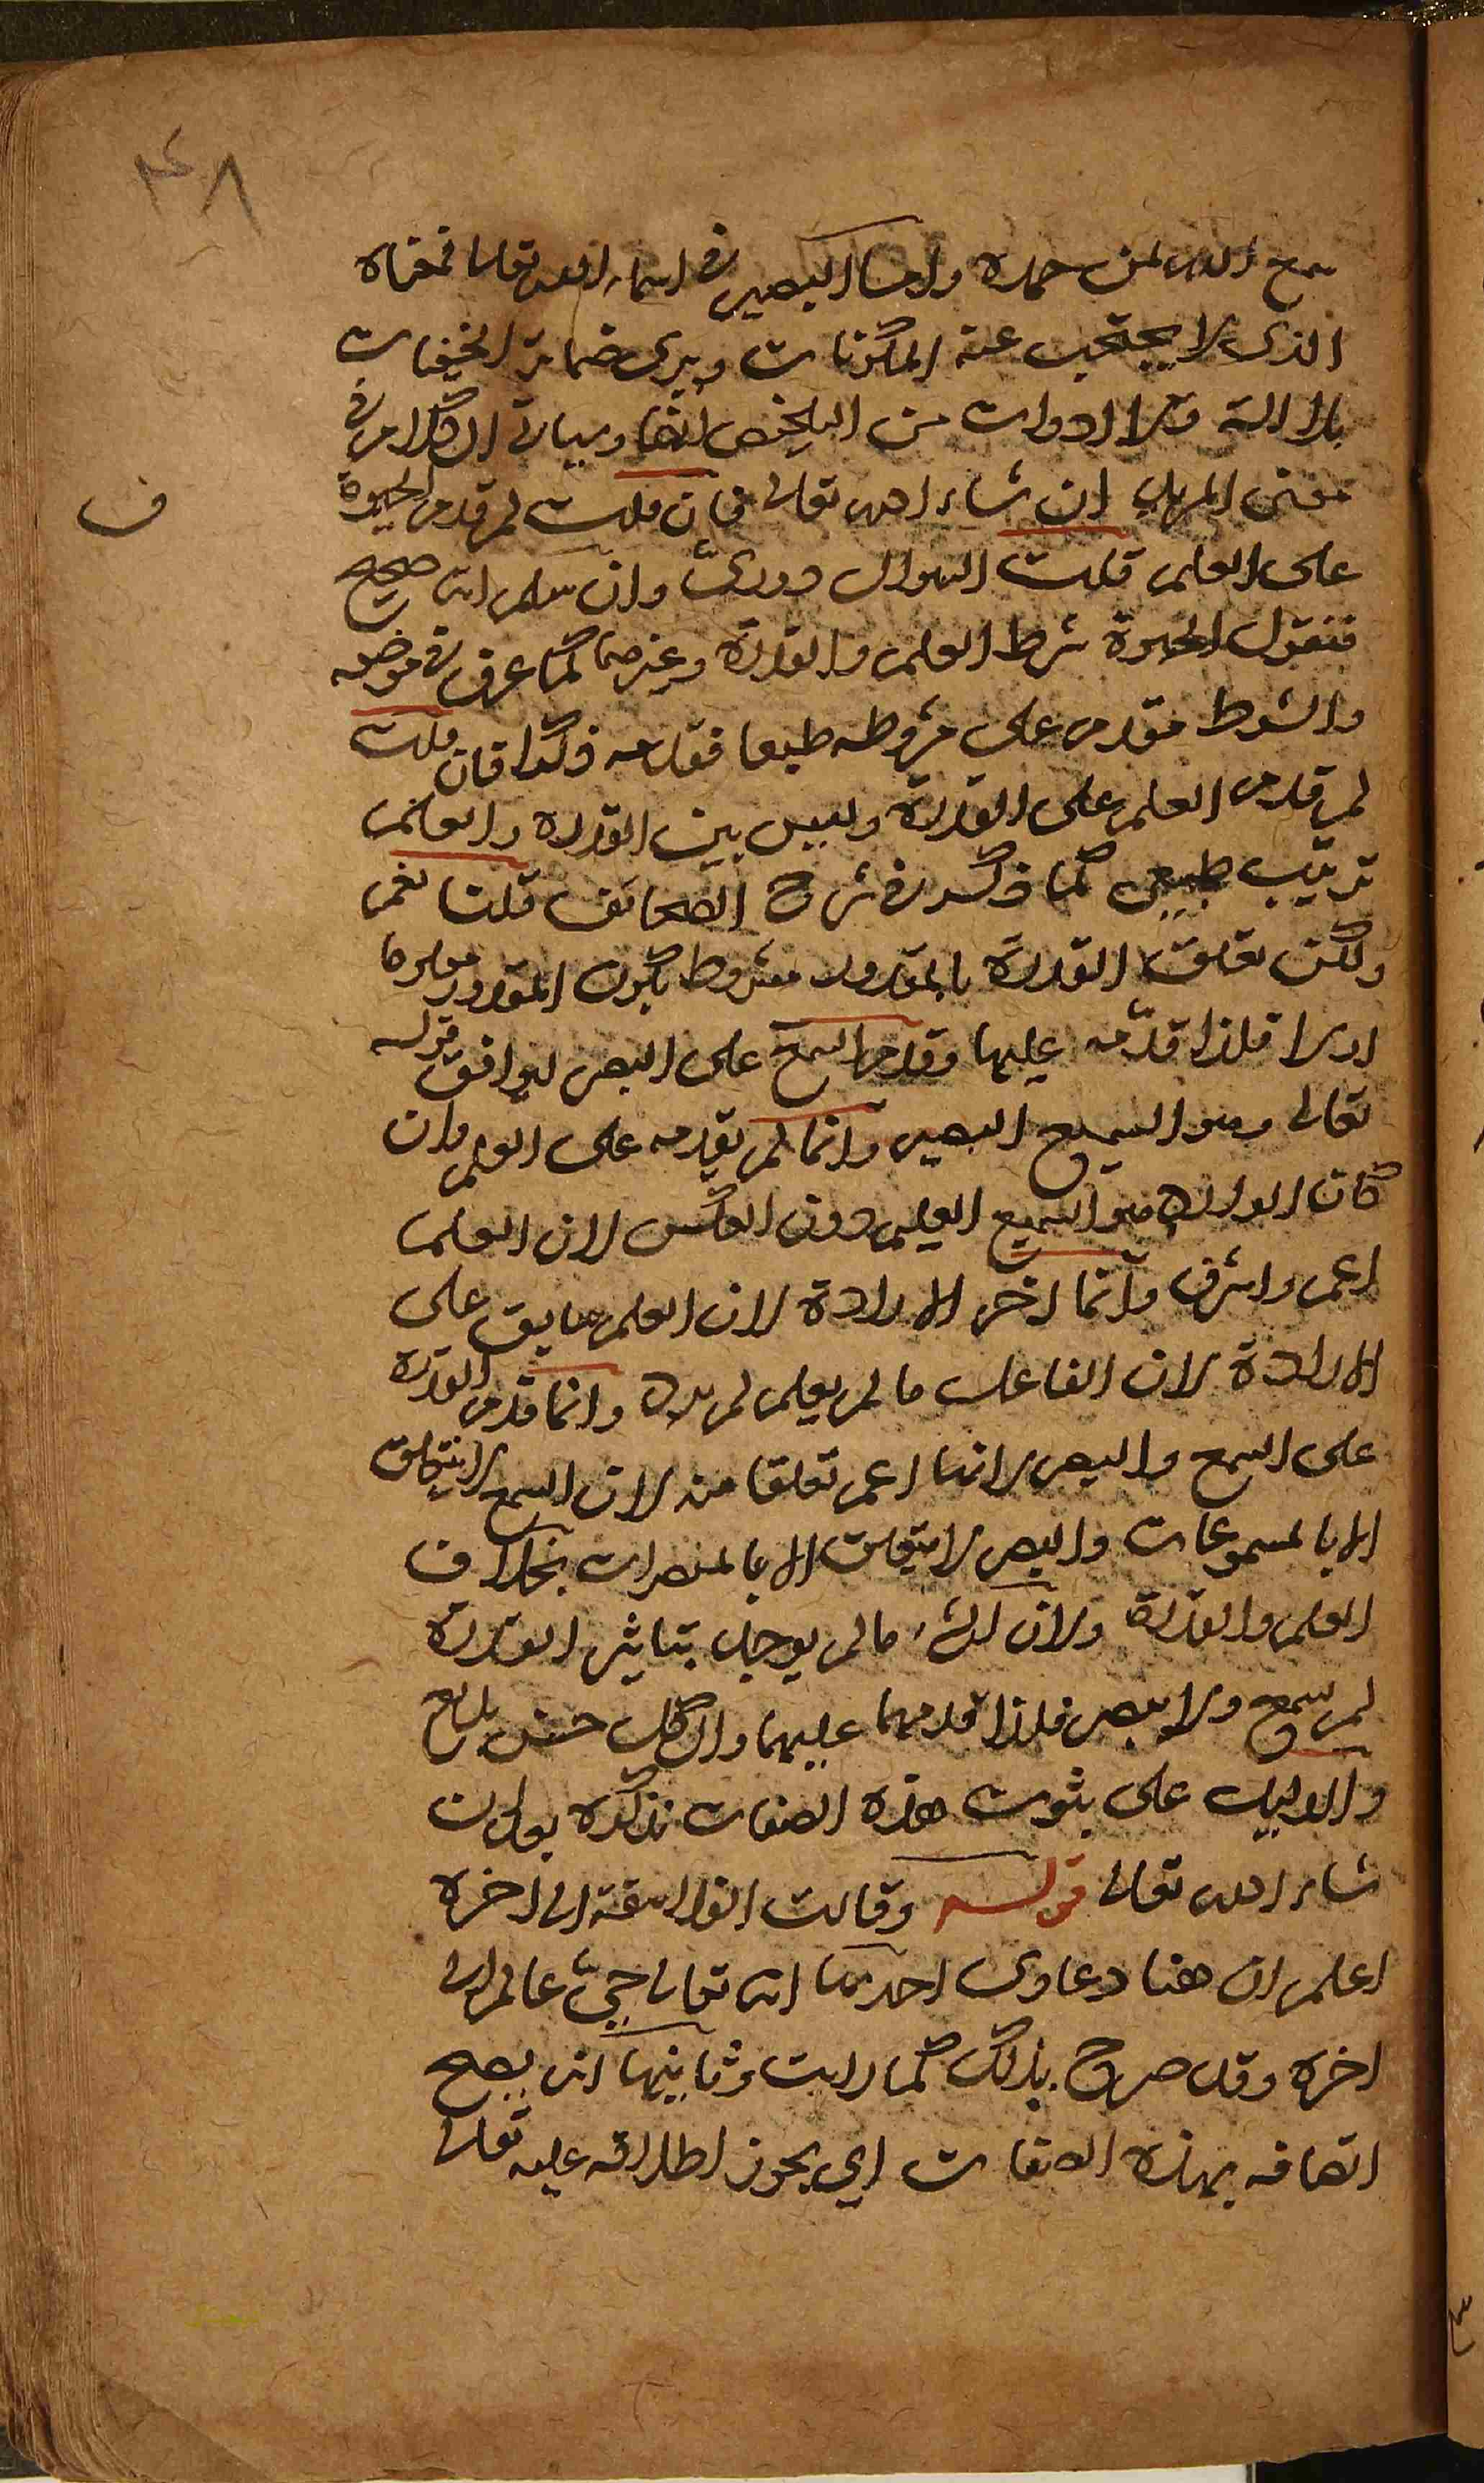 ٣٤٨
سمع الله لمن حمده واما البصير في اسماء الله تعالى فمعناه
الذي لا يحتجب عنه المكونات ويرى ضمائر الخفيات
بلا الة ولا ادوات من التلخيص ايضا وسياتي الكلام في
معنى المريد ان شاء الله تعالى فان قلت لم قدم الحيوة
ف
على العلم قلت السوال دوريّ وان سلم انه صحيح
فنقول الحيوة شرط العلم والقدرة وغيرهما كما عرف في موضعه
والشرط مقدم على مشروطه طبعا فقدمه ذكرا فان قلت
لم قدم العلم على القدرة وليس بين القدرة والعلم
ترتيب طبيعي كما ذكر في شرح الصحائف قلنا نعم
ولكن تعلق القدرة بالمقدور مشروط بكون المقدور معلوما
اولا فلذا قدّمه عليها وقدم السمع على البصر ليوافق قوله
تعالى وهو السميع البصير وانما لم يقدمه على العلم وان
كان الوارد هو السميع العليم دون العكس لان العلم
اعم واشرف وانما اخر الارادة لان العلم سابق على
الارادة لان الفاعل ما لم يعلم لم يرد وانما قدم القدرة
على السمع والبصر لانها اعم تعلقا منه لان السمع لا يتعلق
الا بالمسموعات والبصر لا يتعلق الا بالمبصرات بخلاف
العلم والقدرة ولان الشيء ما لم يوجد بتاثير القدرة
لم يسمع ولا يبصر فلذا قدمهما عليهما والكل حسن بديع
والدليل على ثبوت هذه الصفات نذكره بعد ان
شاء الله تعالى قوله وقالت الفلاسفة الى اخره
اعلم ان هنا دعاوى احدها انه تعالى حيّ عالم الى
اخره وقد صرح بذلك كما رايت وثانيها انه يصح
اتصافه بهذه الصفات اي يجوز اطلاقه عليه تعالى